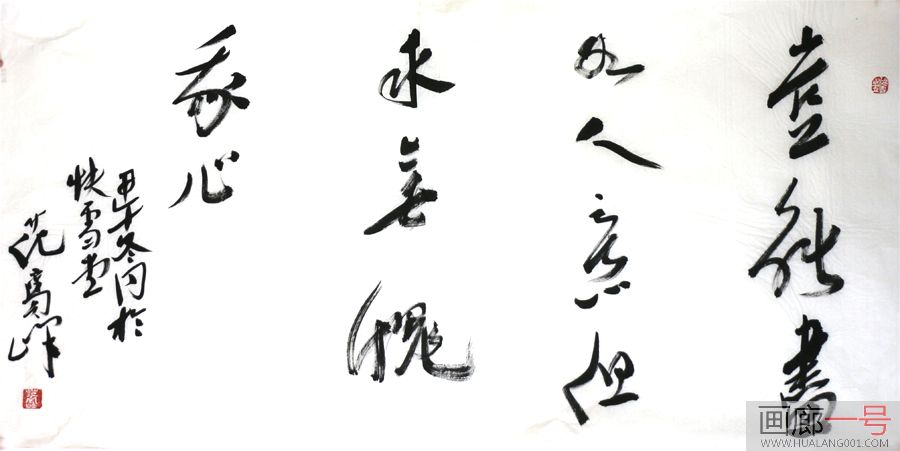 豈能盡
如人意但
求無愧
我心
甲午冬月於
快雪堂
范高峰
画廊一号
WWW.HUALANG001.COM